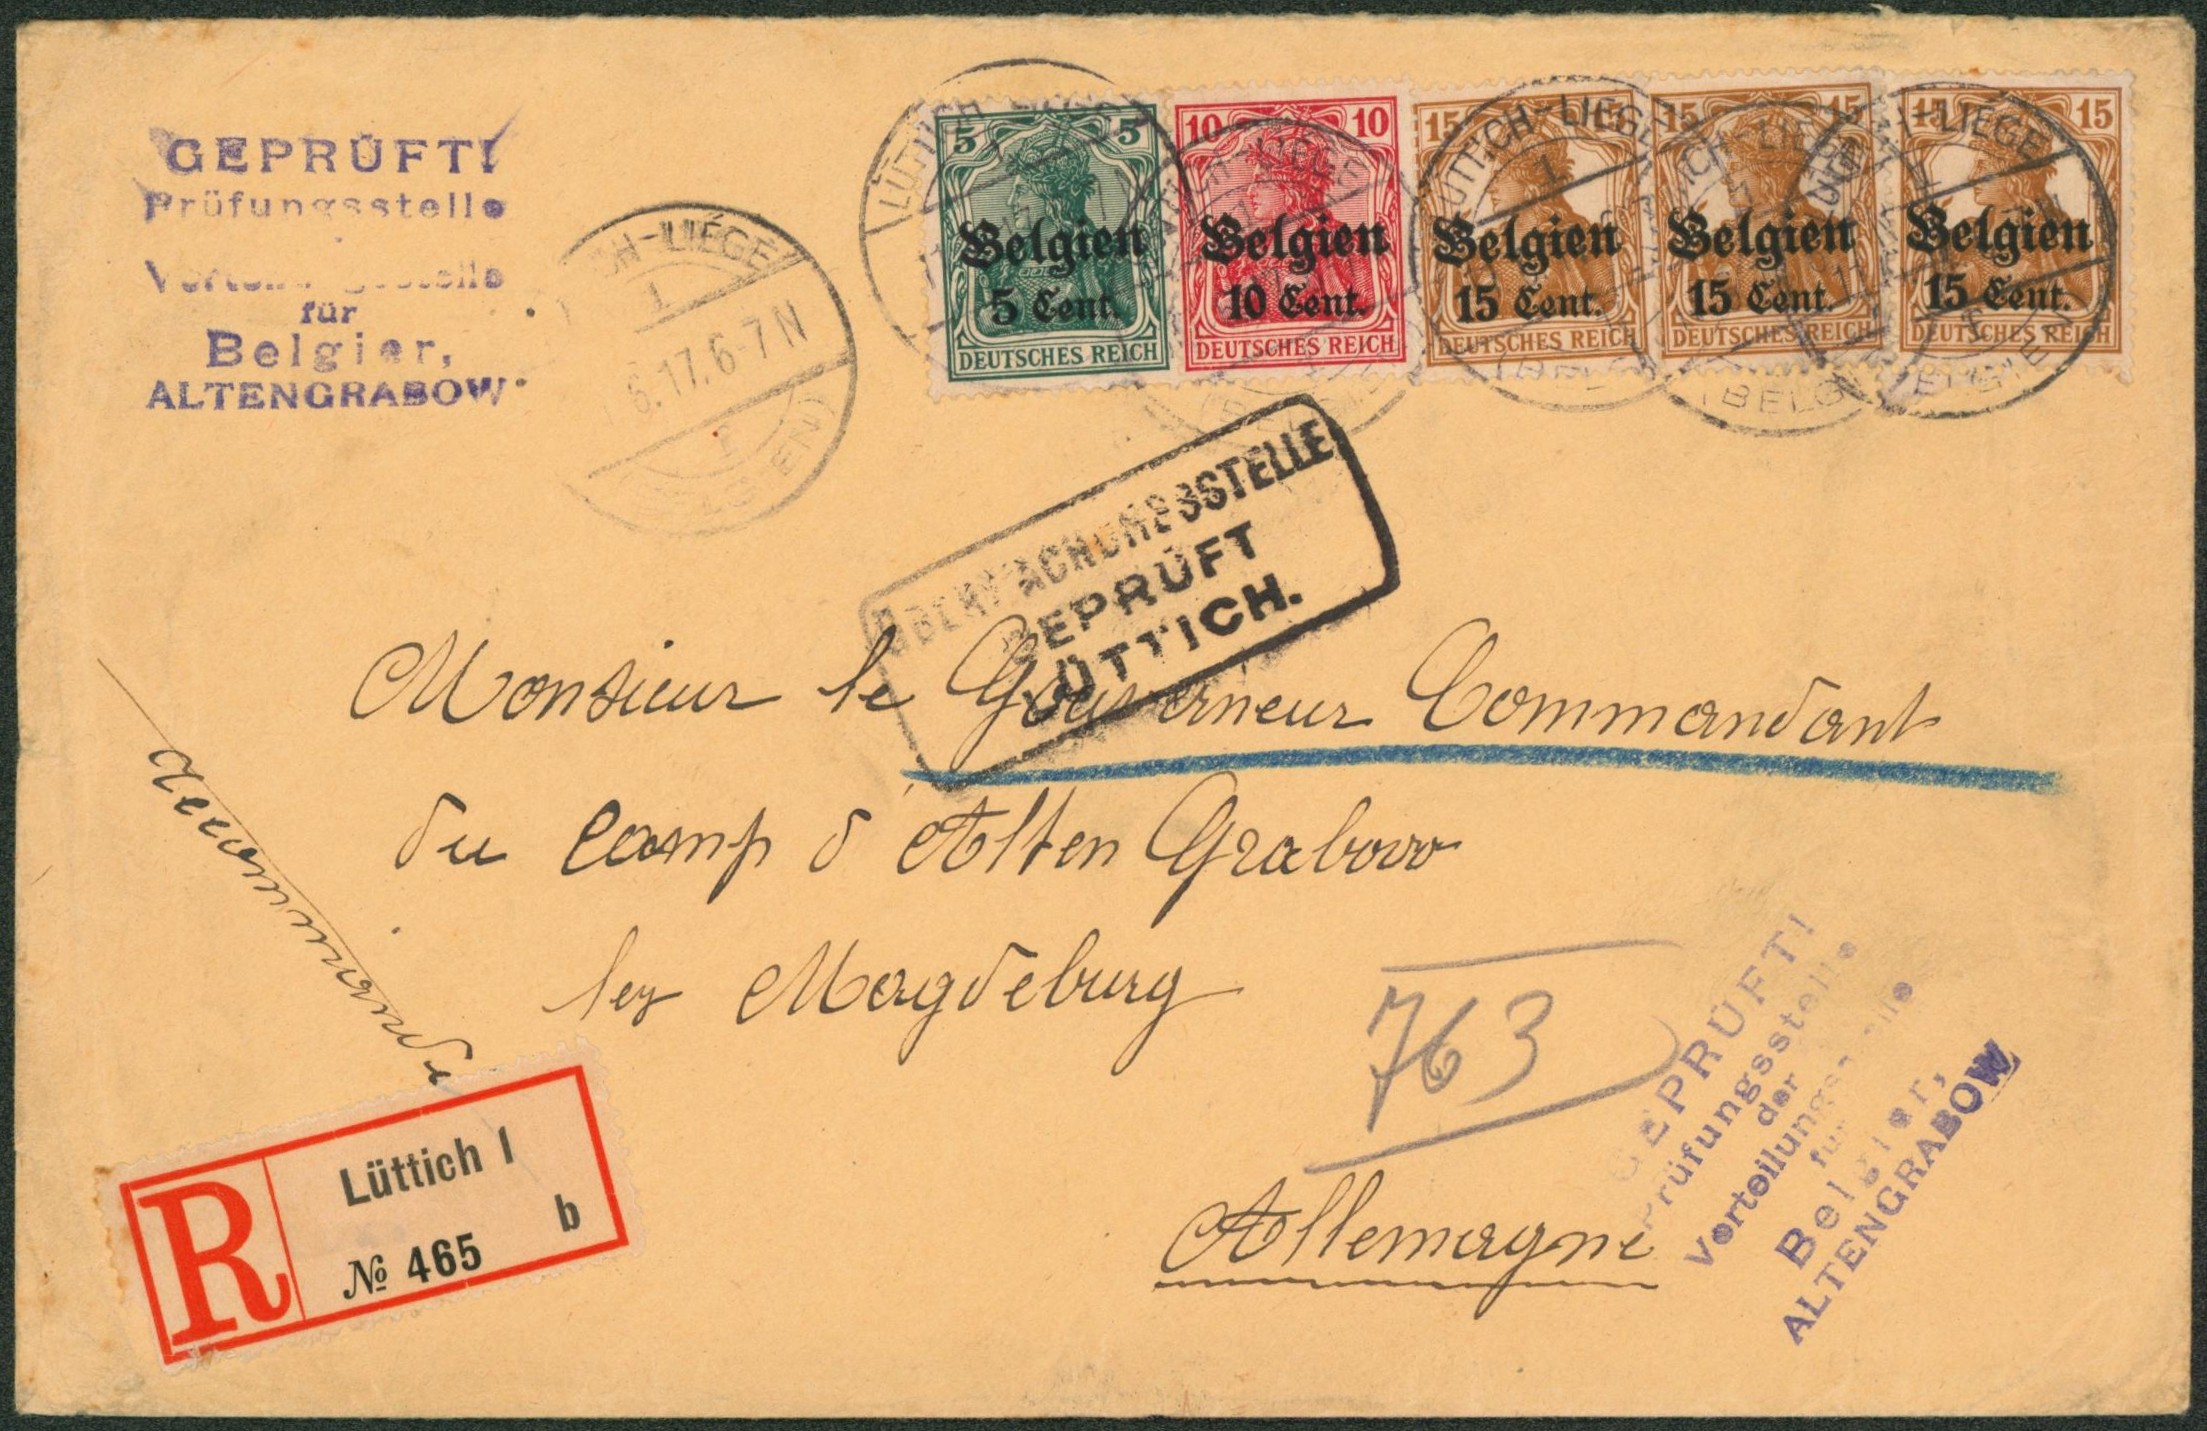 GEPRÜFT!
Prüfungsstelle
für
Belgier,
ALTENGRABOW
LÜTTICH-LIÉGE
6.17.6-7N
5 5
Belgien
5 Cent.
DEUTSCHES REICH
10 10
Belgien
10 Cent.
DEUTSCHES REICH
15 15
Belgien
15 Cent.
DEUTSCHES REICH
15 15
Belgien
15 Cent.
DEUTSCHES REICH
15 15
Belgien
15 Cent.
DEUTSCHES REICH
ÜBERWACHUNGSSTELLE
GEPRÜFT
LÜTTICH.
Monsieur le Gouverneur Commandant
du camp d'Alten Grabow
lez Magdeburg
763
Allemagne
Recommandé
R
Lüttich 1
b
№ 465
GEPRÜFT!
Prüfungsstelle
der
Verteilungsstelle
für
Belgier,
ALTENGRABOW